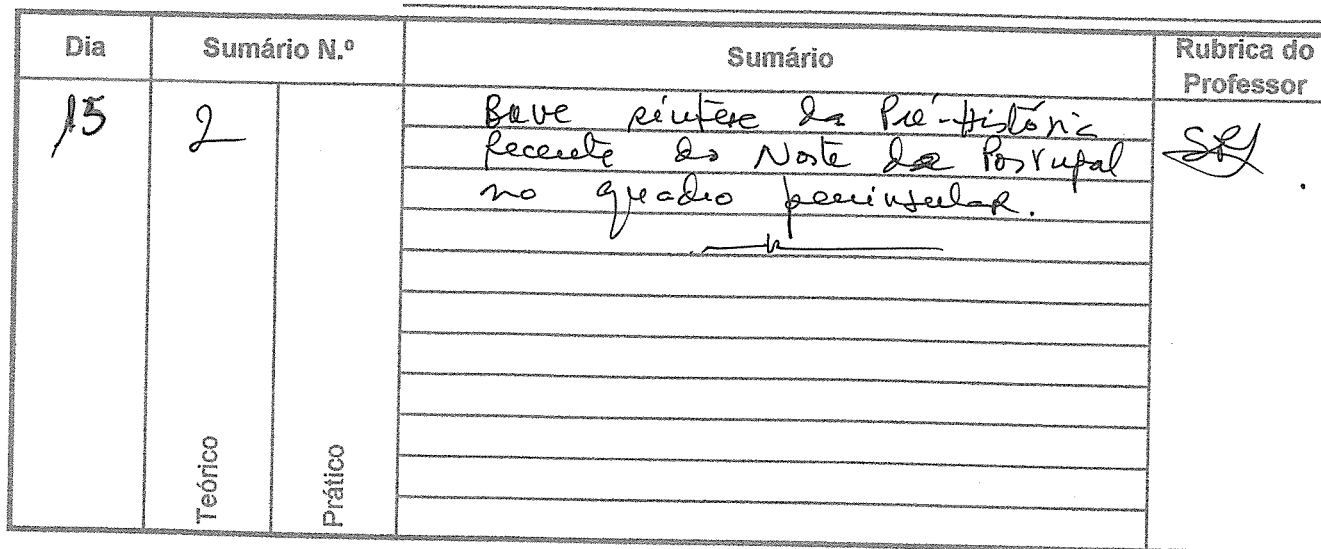 Dia Sumário N.º Sumário Rubrica do Professor
15 2 Breve síntese da Pré-História
Recente do Norte de Portugal
no quadro peninsular.
Teórico Prático